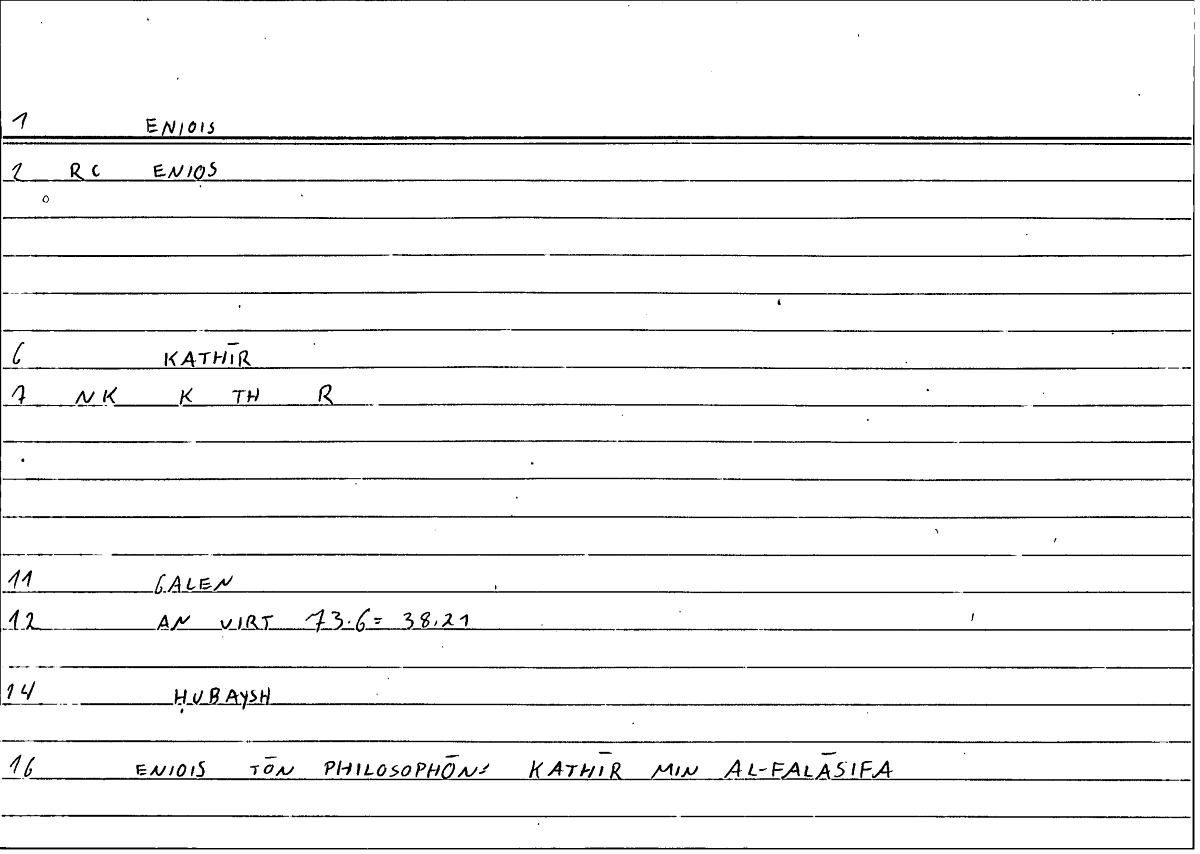 1 ENIOIS
2 RC ENIOS
6 KATHĪR
7 NK K TH R
11 GALEN
12 AN VIRT 73.6= 38.21
14 ḤUBAYSH
16 ENIOIS TŌN PHILOSOPHŌN= KATHĪR MIN AL-FALĀSIFA